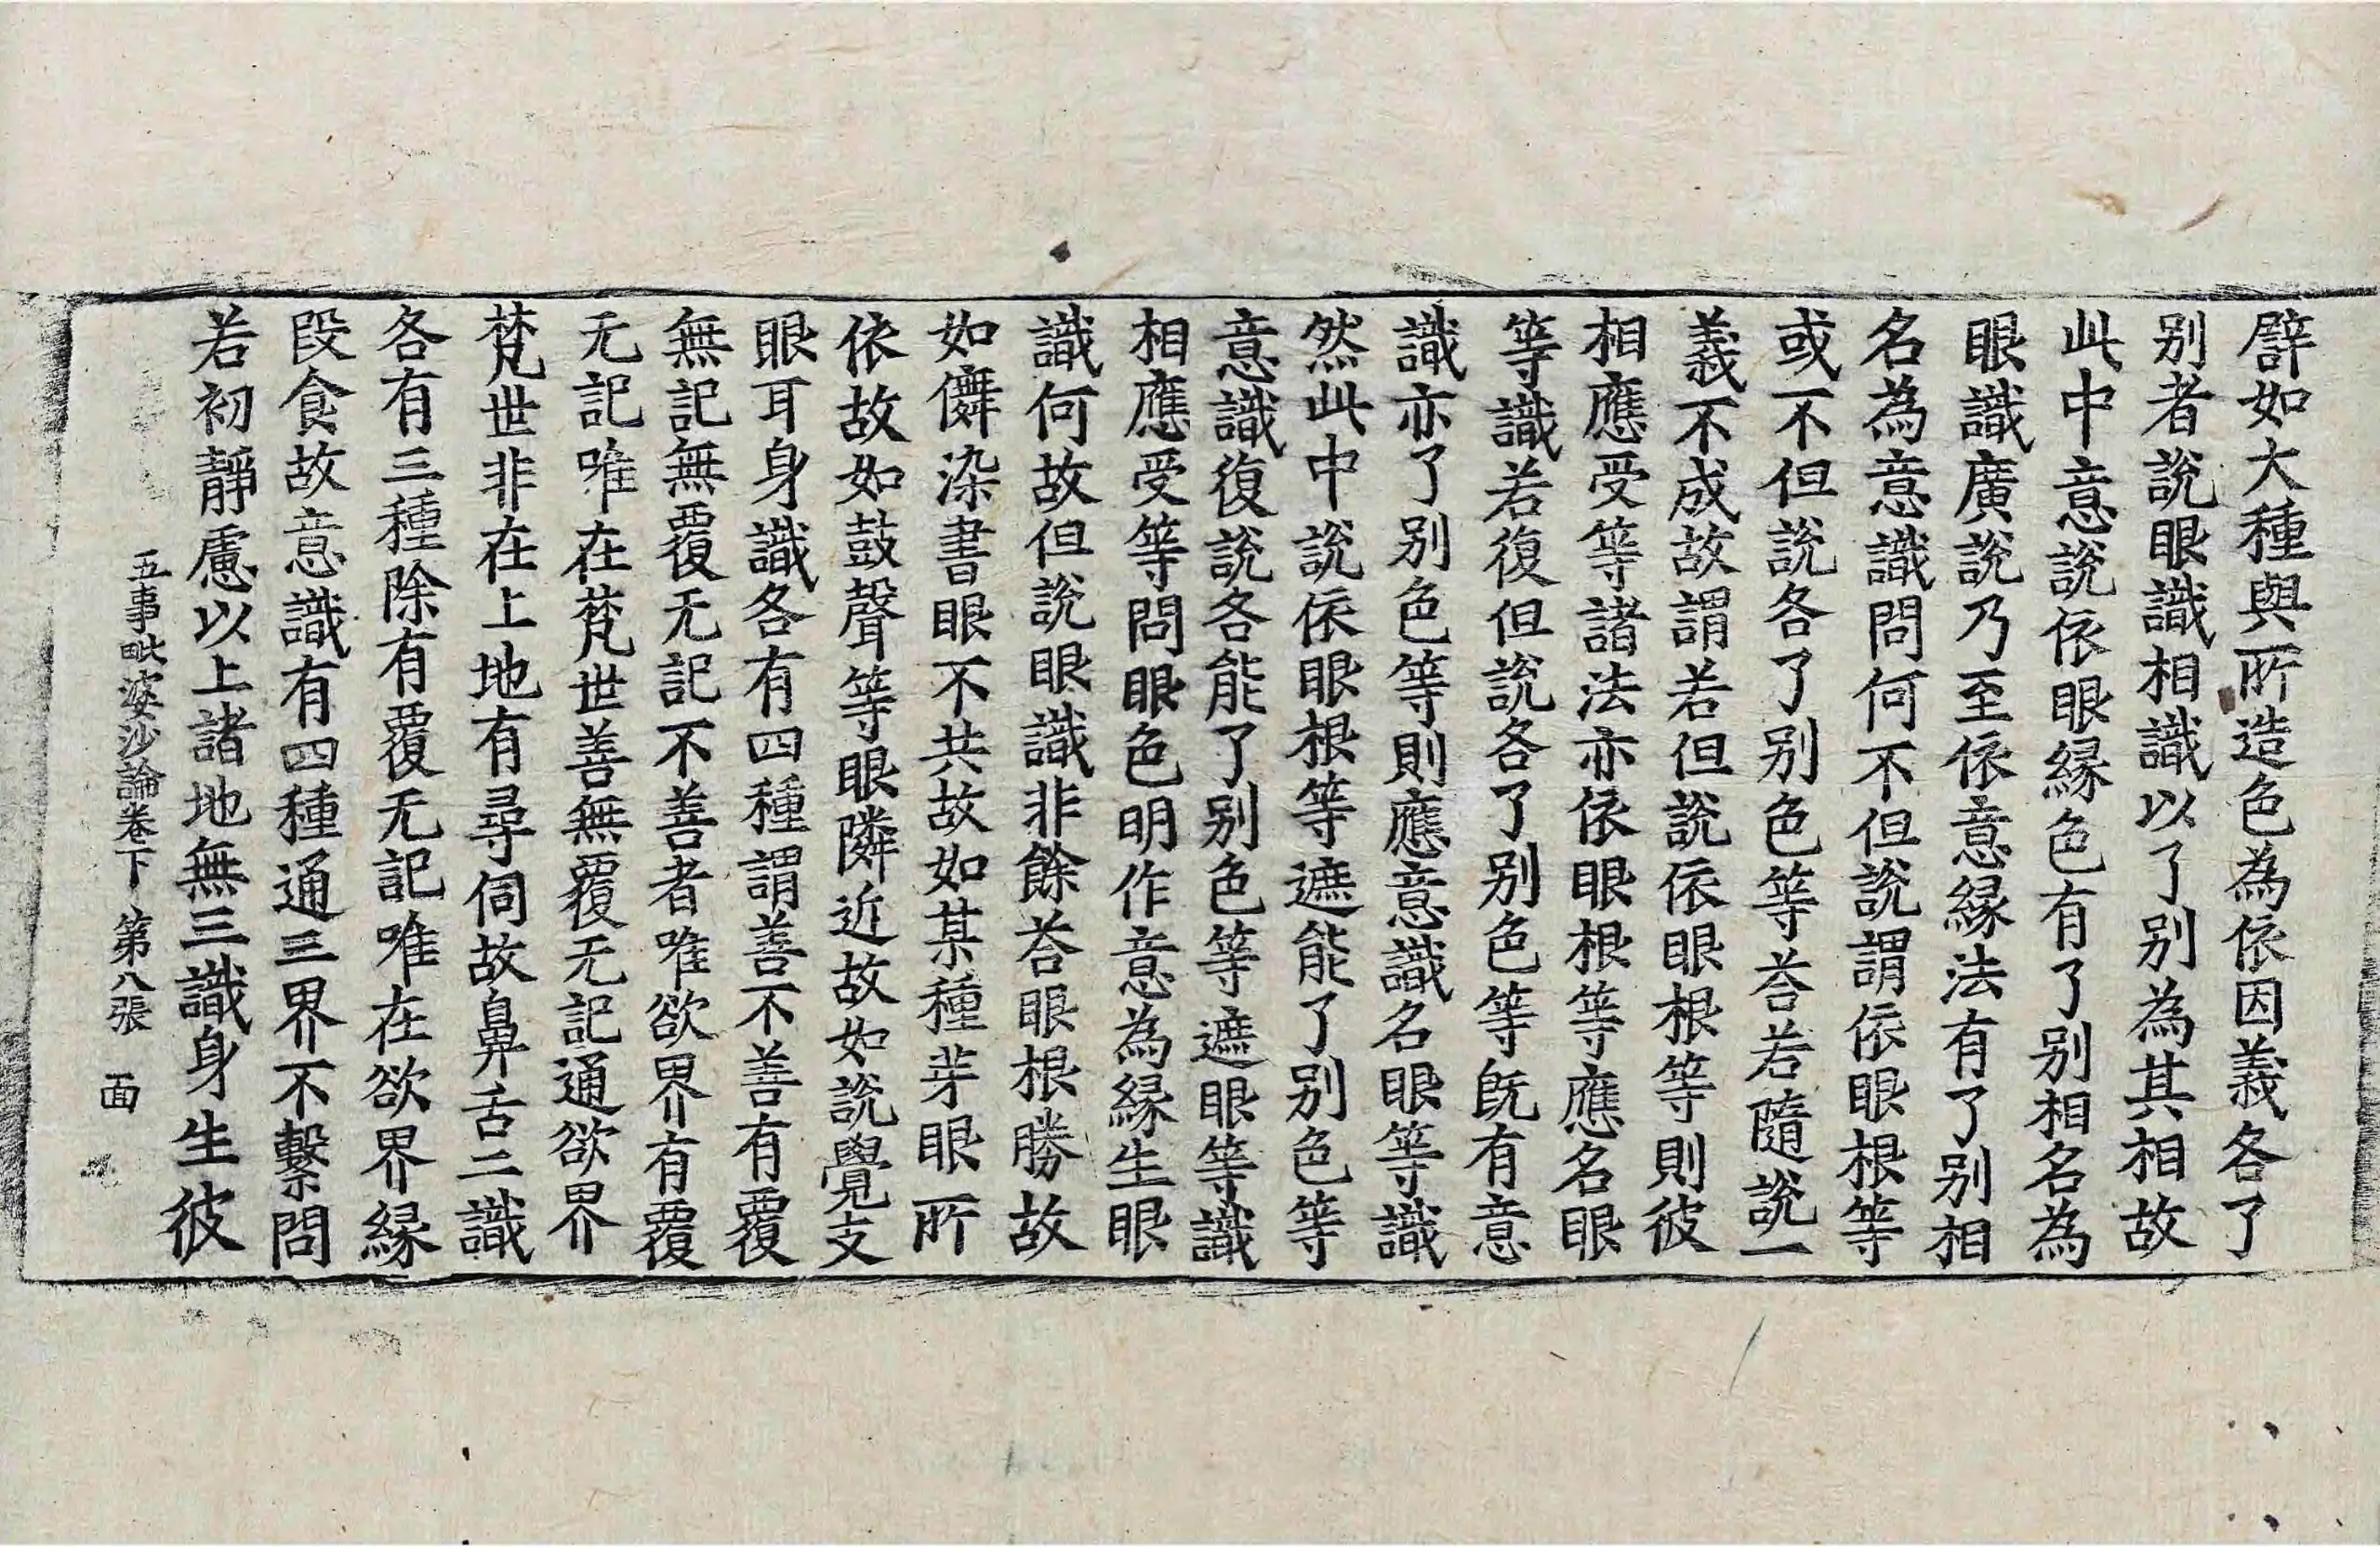 辟如大種與所造色為依因義各了
别者說眼識相識以了别為其相故
此中意說依眼緣色有了别相名為
眼識廣說乃至依意緣法有了别相
名為意識問何不但說謂依眼根等
或不但說各了别色等荅若隨說一
義不成故謂若但說依眼根等則彼
相應受等諸法亦依眼根等應名眼
等識若復但說各了别色等旣有意
識亦了别色等則應意識名眼等識
然此中說依眼根等遮能了别色等
意識復說各能了别色等遮眼等識
相應受等問眼色明作意為緣生眼
識何故但說眼識非餘荅眼根勝故
如儛染書眼不共故如某種芽眼所
依故如鼓聲等眼隣近故如說覺支
眼耳身識各有四種謂善不善有覆
無記無覆无記不善者唯欲界有覆
无記唯在梵世善無覆无記通欲界
梵世非在上地有尋伺故鼻舌二識
各有三種除有覆无記唯在欲界緣
段食故意識有四種通三界不繫問
若初靜慮以上諸地無三識身生彼
五事毗婆沙論卷下 第八張 面